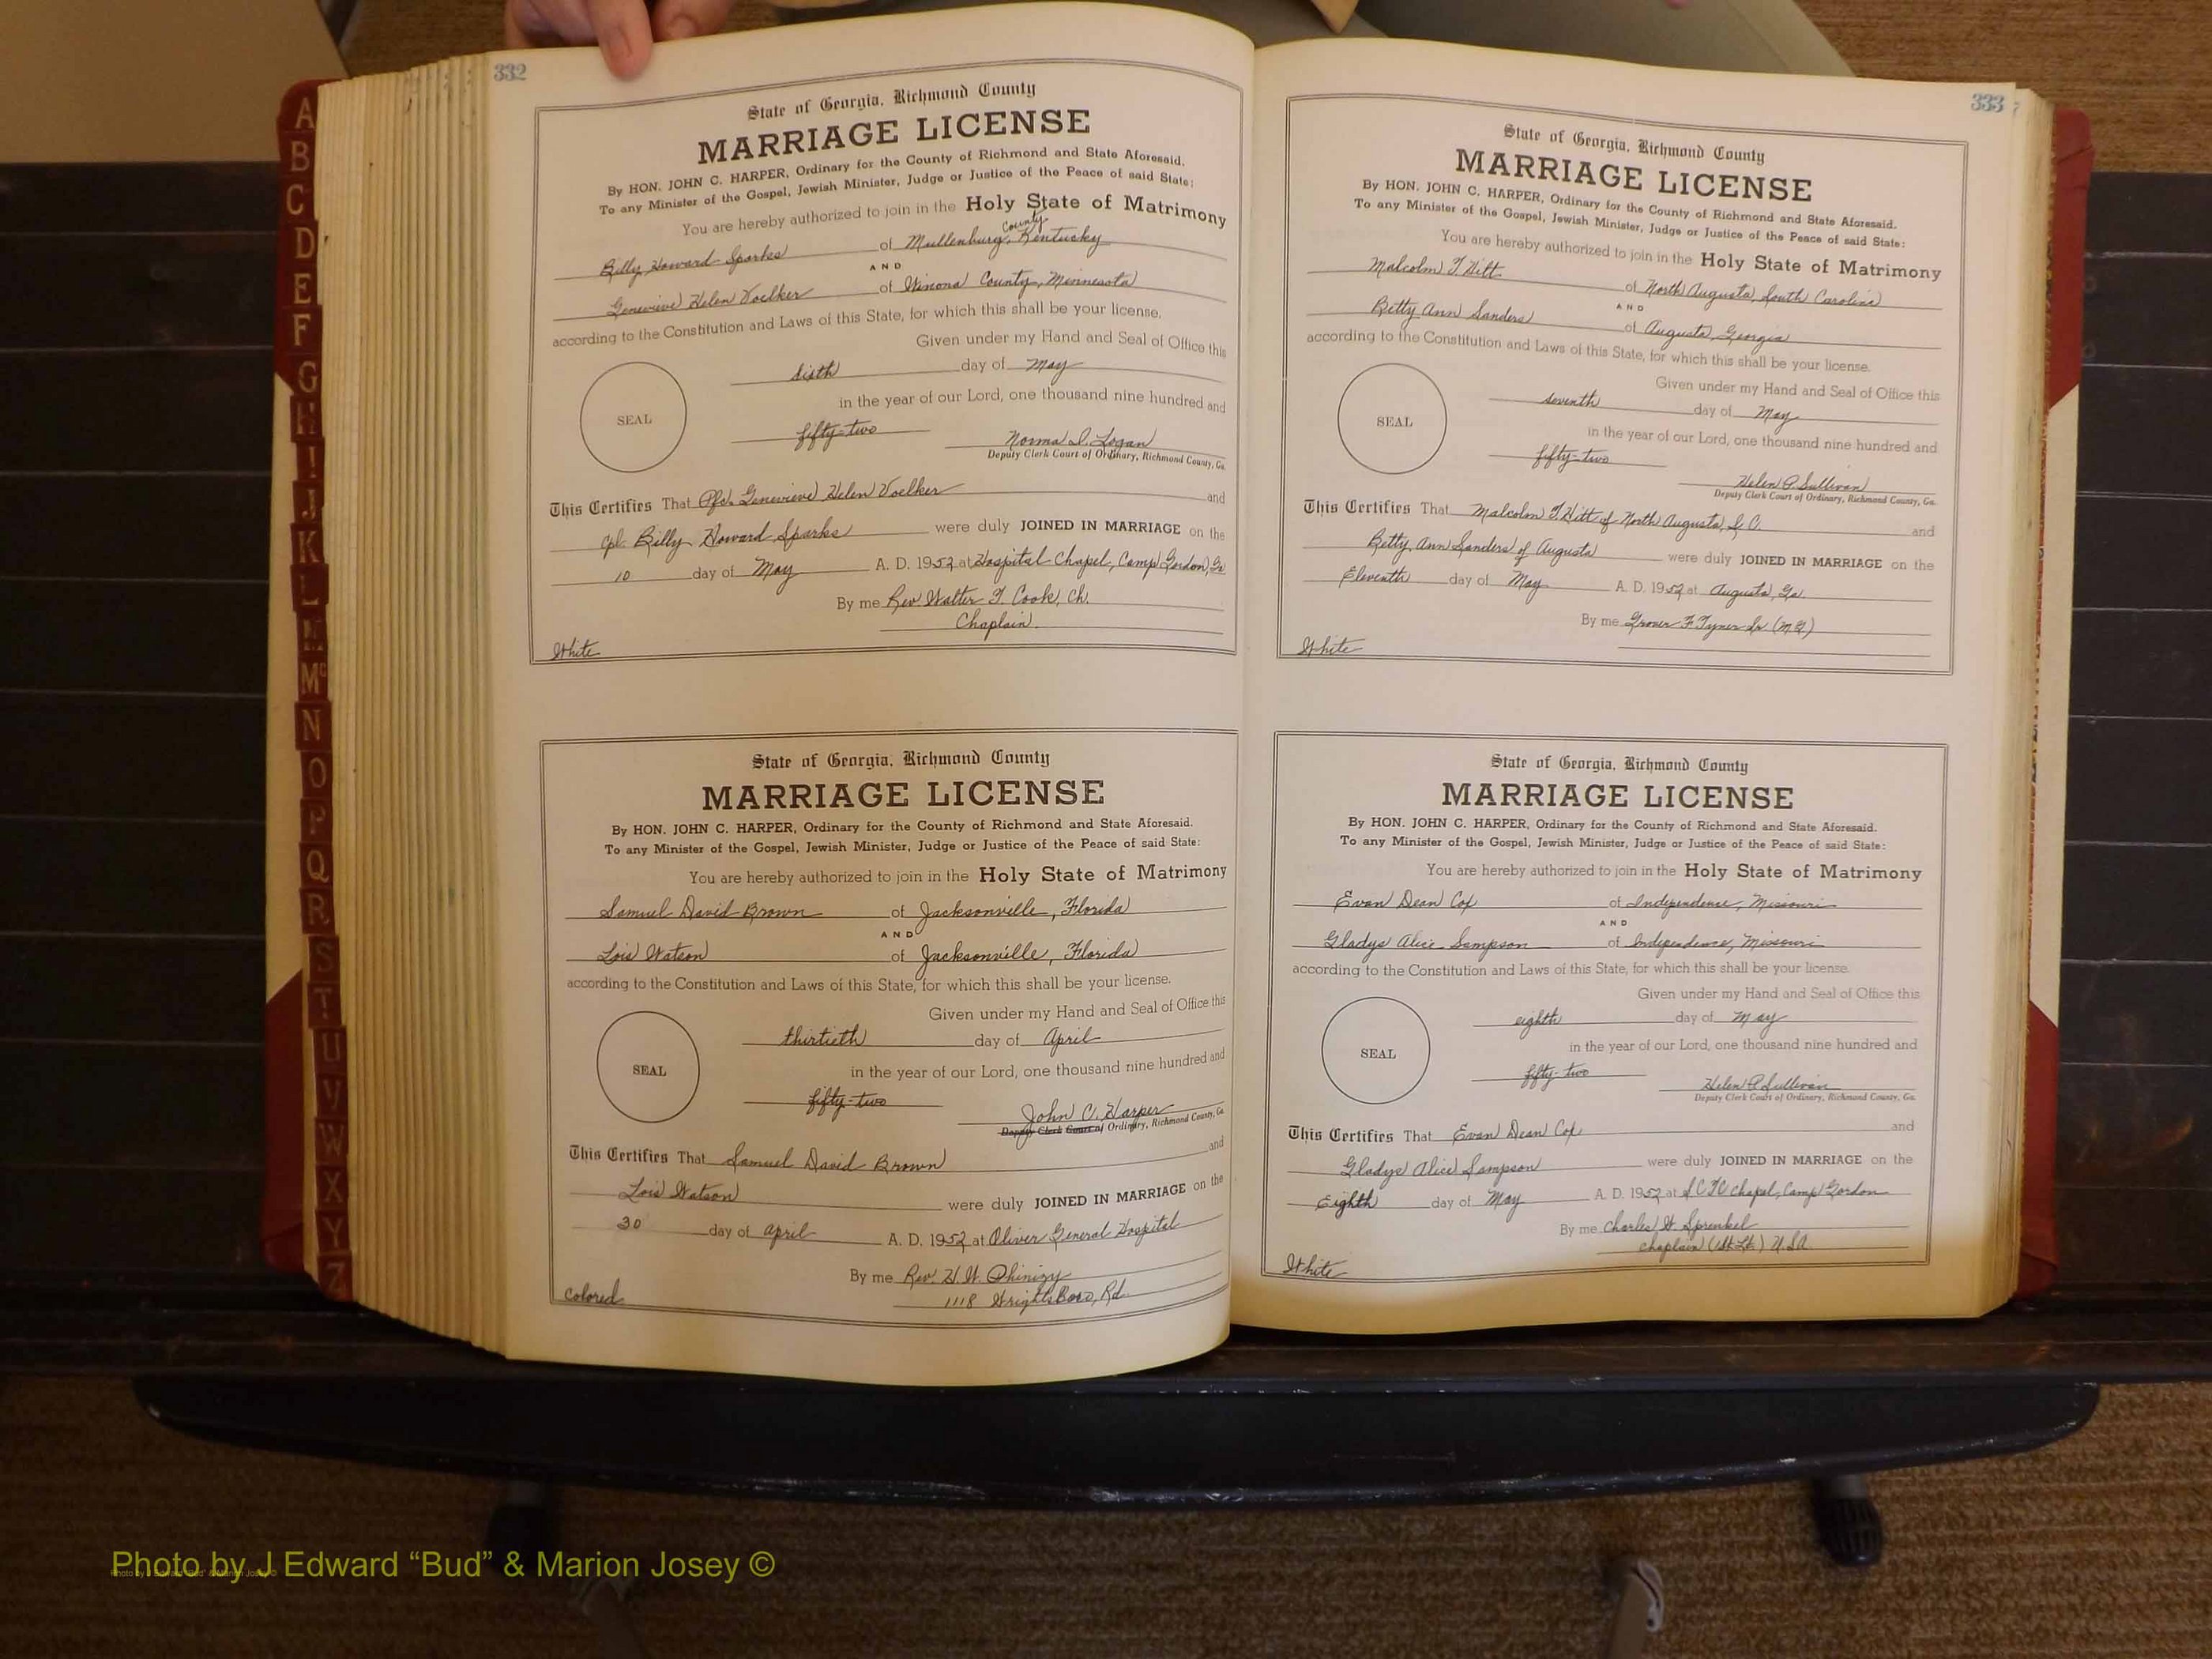 332
State of Georgia, Richmond County
MARRIAGE LICENSE
By HON. JOHN C. HARPER, Ordinary for the County of Richmond and State Aforesaid.
To any Minister of the Gospel, Jewish Minister, Judge or Justice of the Peace of said State:
You are hereby authorized to join in the Holy State of Matrimony
Billy Howard Sparks of Mullenburg County, Kentucky
AND
Genevieve Helen Voelker of Winona County, Minnesota
according to the Constitution and Laws of this State, for which this shall be your license.
Given under my Hand and Seal of Office this
sixth day of May
in the year of our Lord, one thousand nine hundred and
SEAL
fifty-two
Norma I. Logan
Deputy Clerk Court of Ordinary, Richmond County, Ga.
This Certifies That Pfc. Genevieve Helen Voelker and
Cpl. Billy Howard Sparks were duly JOINED IN MARRIAGE on the
10 day of May A. D. 1952 at Hospital Chapel, Camp Gordon, Ga
By me Rev. Walter T. Cook, Ch.
Chaplain.
White
State of Georgia, Richmond County
MARRIAGE LICENSE
By HON. JOHN C. HARPER, Ordinary for the County of Richmond and State Aforesaid.
To any Minister of the Gospel, Jewish Minister, Judge or Justice of the Peace of said State:
You are hereby authorized to join in the Holy State of Matrimony
Samuel David Brown of Jacksonville, Florida
AND
Lois Watson of Jacksonville, Florida
according to the Constitution and Laws of this State, for which this shall be your license.
Given under my Hand and Seal of Office this
thirtieth day of April
in the year of our Lord, one thousand nine hundred and
SEAL
fifty-two
John C. Harper
Deputy Clerk Court of Ordinary, Richmond County, Ga.
This Certifies That Samuel David Brown and
Lois Watson were duly JOINED IN MARRIAGE on the
30 day of April A. D. 1952 at Oliver General Hospital
By me Rev. H. W. Phinizy
1118 Wrightsboro, Rd.
Colored
333
State of Georgia, Richmond County
MARRIAGE LICENSE
By HON. JOHN C. HARPER, Ordinary for the County of Richmond and State Aforesaid.
To any Minister of the Gospel, Jewish Minister, Judge or Justice of the Peace of said State:
You are hereby authorized to join in the Holy State of Matrimony
Malcolm T. Hitt of North Augusta, South Carolina
AND
Betty Ann Sanders of Augusta, Georgia
according to the Constitution and Laws of this State, for which this shall be your license.
Given under my Hand and Seal of Office this
seventh day of May
in the year of our Lord, one thousand nine hundred and
SEAL
fifty-two
Helen P. Sullivan
Deputy Clerk Court of Ordinary, Richmond County, Ga.
This Certifies That Malcolm T. Hitt of North Augusta, S.C. and
Betty Ann Sanders of Augusta were duly JOINED IN MARRIAGE on the
Eleventh day of May A. D. 1952 at Augusta, Ga.
By me Grover F. Tyner Jr (M.G.)
White
State of Georgia, Richmond County
MARRIAGE LICENSE
By HON. JOHN C. HARPER, Ordinary for the County of Richmond and State Aforesaid.
To any Minister of the Gospel, Jewish Minister, Judge or Justice of the Peace of said State:
You are hereby authorized to join in the Holy State of Matrimony
Evan Dean Cox of Independence, Missouri
AND
Gladys Alice Sampson of Independence, Missouri
according to the Constitution and Laws of this State, for which this shall be your license.
Given under my Hand and Seal of Office this
eighth day of May
in the year of our Lord, one thousand nine hundred and
SEAL
fifty-two
Helen P. Sullivan
Deputy Clerk Court of Ordinary, Richmond County, Ga.
This Certifies That Evan Dean Cox and
Gladys Alice Sampson were duly JOINED IN MARRIAGE on the
Eighth day of May A. D. 1952 at SCTC Chapel, Camp Gordon
By me Charles W. Sprenkel
Chaplain (1st Lt.) U.S.A.
White
A
B
C
D
E
F
G
H
I
J
K
L
M
Mc
N
O
P
Q
R
S
T
U
V
W
X
Y
Z
Photo by J Edward “Bud” & Marion Josey ©
Photo by J Edward "Bud" & Marion Josey ©